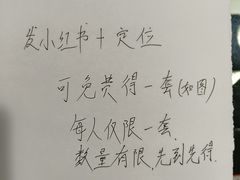 发小红书+定位
可免费得一套(如图)
每人仅限一套.
数量有限,先到先得.